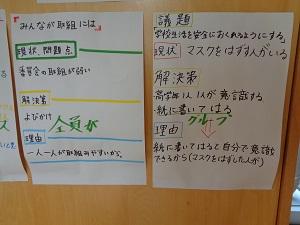 みんなが取組には
現状、問題点
委員会の取組が弱い
解決策
よびかけ 全員が
理由
一人一人が取組みやすいから。
議題
学校生活を安全におくれるようにする。
現状 マスクをはずす人がいる
解決策
高学年1人1人が意識する
・紙に書いてはる
グループ
理由
紙に書いてはると自分で意識
できるから(マスクをはずした人が)